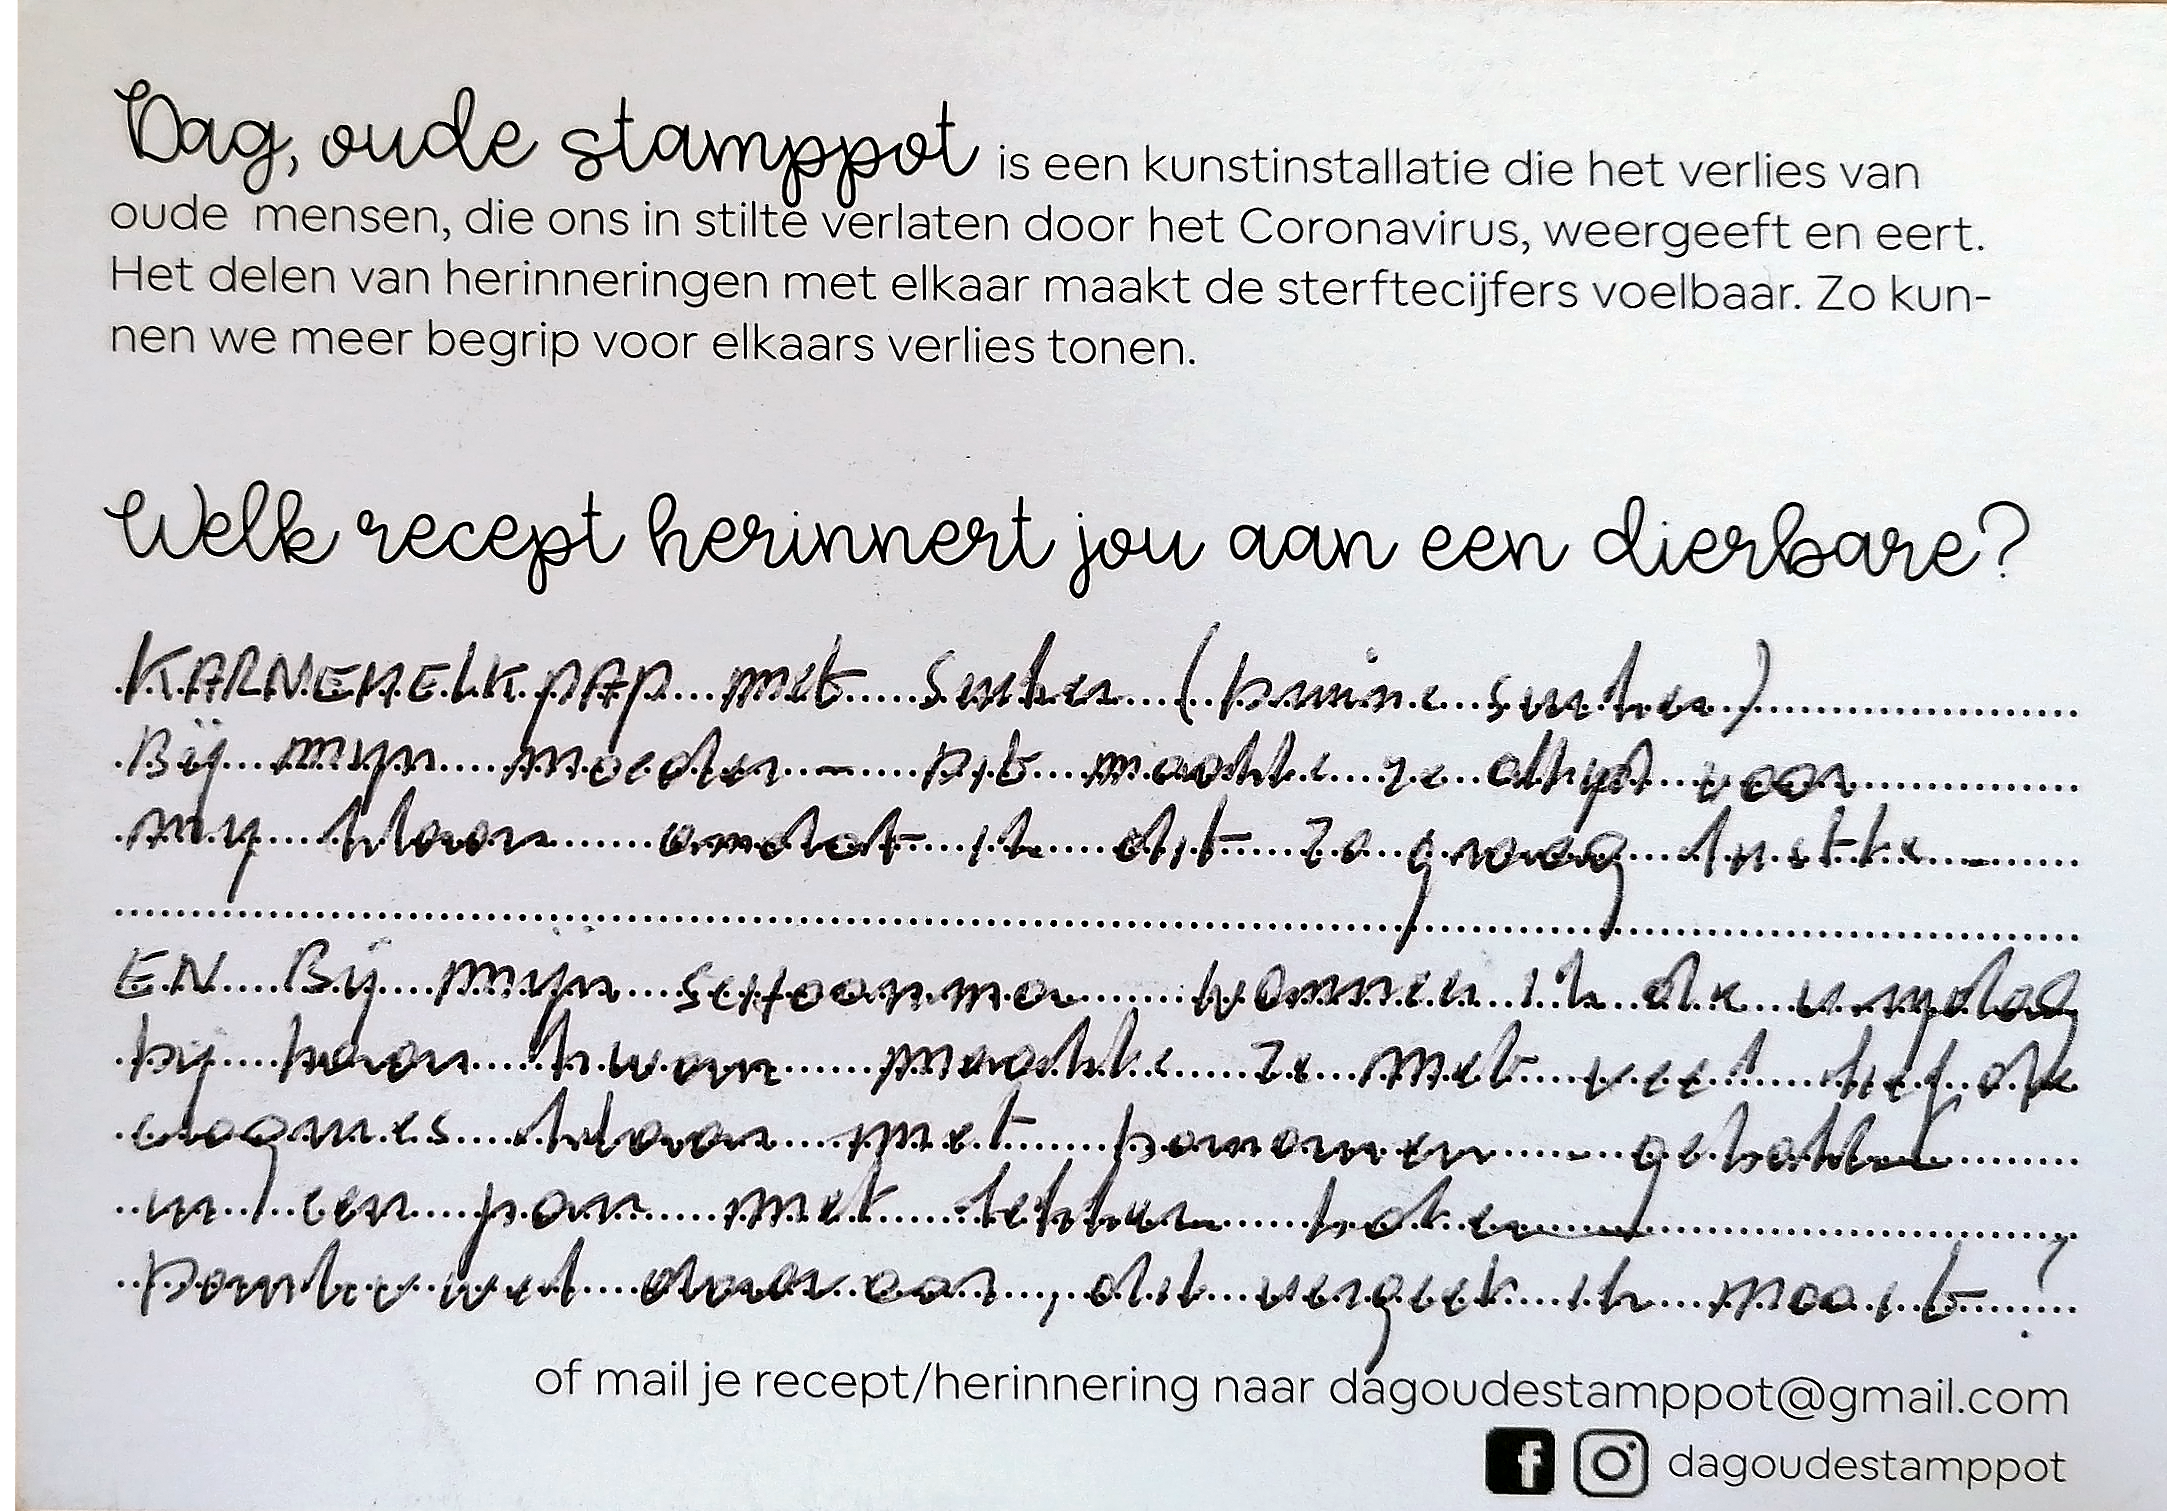 Dag, oude stamppot is een kunstinstallatie die het verlies van
oude mensen, die ons in stilte verlaten door het Coronavirus, weergeeft en eert.
Het delen van herinneringen met elkaar maakt de sterftecijfers voelbaar. Zo kun-
nen we meer begrip voor elkaars verlies tonen.
Welk recept herinnert jou aan een dierbare?
KARNEMELKPAP met suiker (bruine suiker)
Bij mijn moeder - Dit maakte ze altijd voor
mij klaar omdat ik dit zo graag lustte -
EN Bij mijn SCHOONma wanneer ik de vrijdag
bij haar kwam maakte ze met veel liefde
klaar met bananen - gebakken
in een pan met lekker boter
Dankbaar wel daarvoor, dit vergeet ik nooit!
of mail je recept/herinnering naar dagoudestamppot@gmail.com
dagoudestamppot